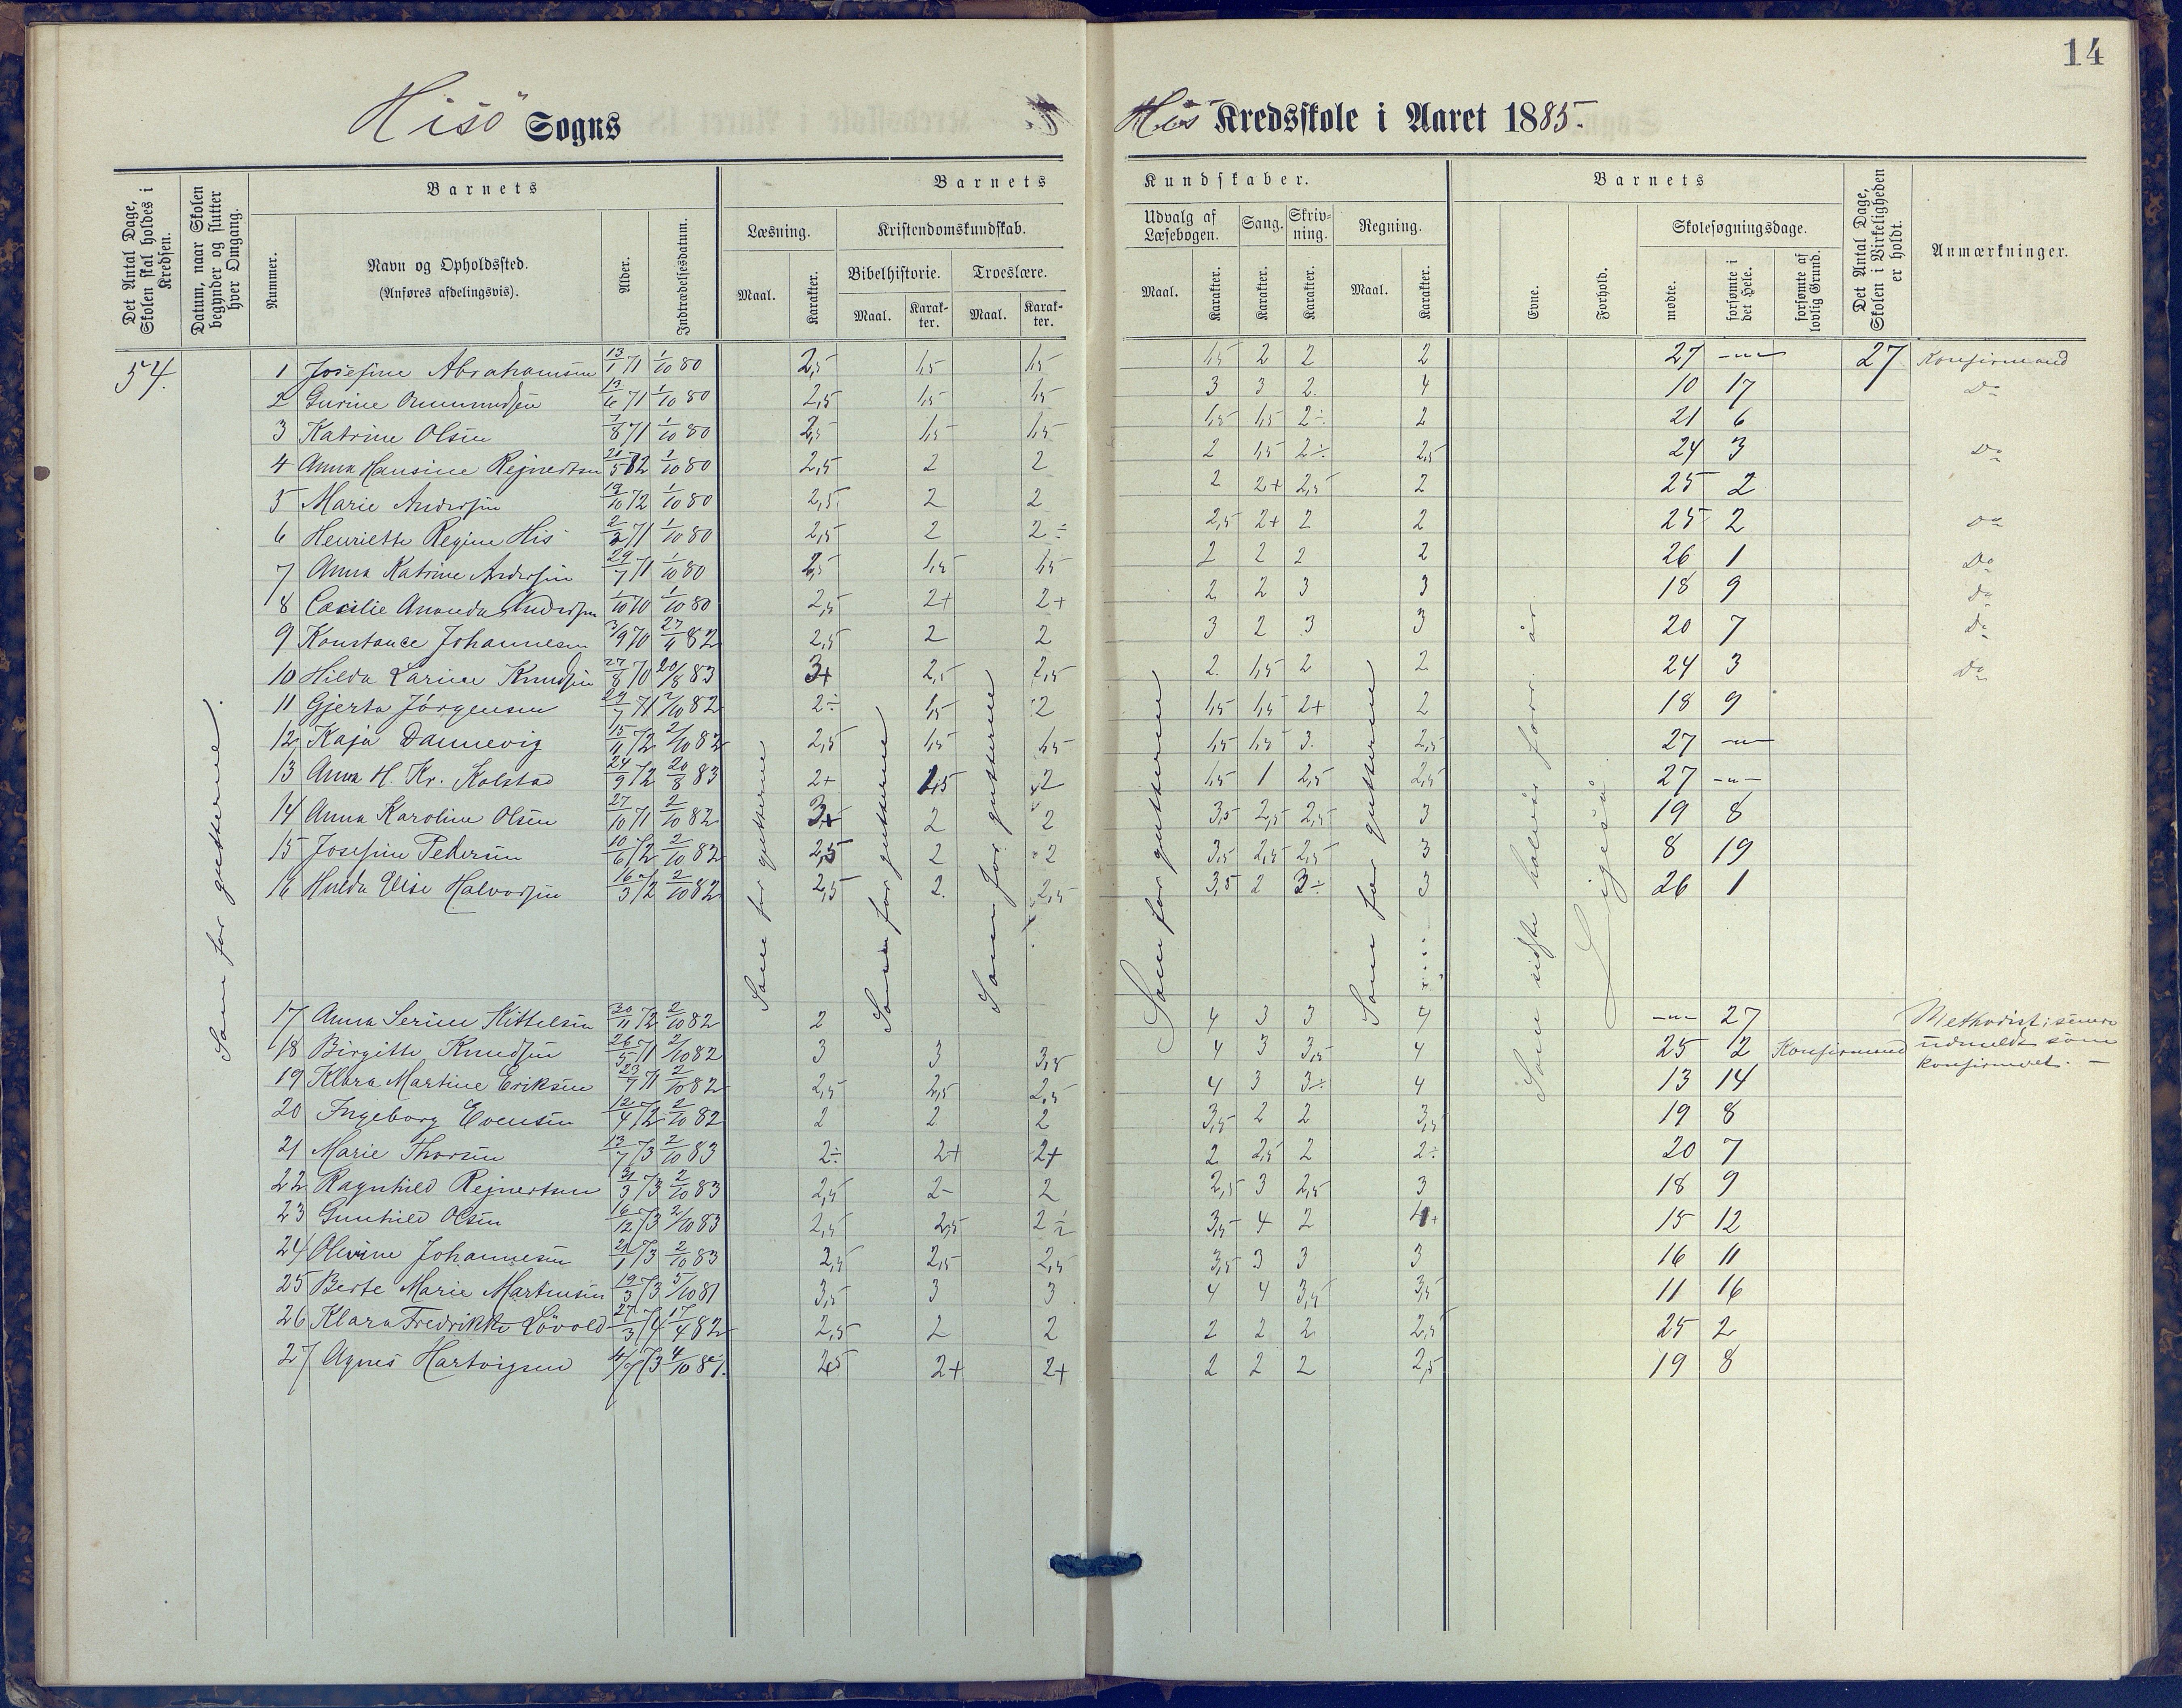 14
Hisö Sogns
His Kredsskole i Aaret 1885.
Det Antal Dage, Skolen skal holdes i Kredsen.
Datum, naar Skolen begynder og slutter hver Omgang.
Barnets
Nummer.
Navn og Opholdssted.
(Anføres afdelingsvis).
Alder.
Indtrædelsesdatum.
Barnets Kundskaber.
Læsning.
Maal.
Karakter.
Kristendomskundskab.
Bibelhistorie.
Maal.
Karakter.
Troeslære.
Maal.
Karakter.
Udvalg af Læsebogen.
Maal.
Karakter.
Sang.
Karakter.
Skrivning.
Karakter.
Regning.
Maal.
Karakter.
Barnets
Evne.
Forhold.
Skolesøgningsdage.
mødte.
forsømte i det Hele.
forsømte af lovlig Grund.
Det Antal Dage, Skolen i Virkeligheden er holdt.
Anmærkninger.
54.
Som for gutterne.
Som for gutterne
Som for gutterne
Som for gutterne
Som for gutterne
Som for gutterne
Som sidste halvår forr. år.
Ligeså
1 Josefine Abrahamsen 13/1 71 1/10 80 2,5 1,5 1,5 1,5 2 2 2 27 -"- 27 Konfirmand
2 Gurine Ommundsen 13/6 71 1/10 80 2,5 1,5 1,5 3 3 2. 4 10 17 Do
3 Katrine Olsen 7/8 71 1/10 80 2,5 1,5 1,5 1,5 1,5 2÷ 2 21 6
4 Anna Hansine Rejnertsen 21/5 72 1/10 80 2,5 2 2 2 1,5 2÷ 2,5 24 3 Do
5 Marie Andersen 19/10 72 1/10 80 2,5 2 2 2 2+ 2,5 2 25 2
6 Henriette Regine His 2/3 71 1/10 80 2,5 2 2÷ 2,5 2+ 2 2 25 2 Do
7 Anna Katrine Andersen 29/7 71 1/10 80 2,5 1,5 1,5 2 2 2 2 26 1 Do
8 Cæcilie Amanda Andersen 1/10 70 1/10 80 2,5 2+ 2+ 2 2 3 3 18 9 Do
9 Konstance Johannesen 3/9 70 27/11 82 2,5 2 2 3 2 3 3 20 7 Do
10 Hilda Larine Knudsen 27/8 70 20/8 83 3+ 2,5 2,5 2. 1,5 2 2 24 3 Do
11 Gjerta Jörgensen 29/7 71 2/10 82 2÷ 1,5 2 1,5 1,5 2+ 2 18 9
12 Kaja Dannevig 15/11 72 2/10 82 2,5 1,5 1,5 1,5 1,5 3. 2,5 27 -"-
13 Anna H. Kr. Kolstad 24/9 72 20/8 83 2+ 1,5 2 1,5 1 2,5 2,5 27 -"-
14 Anna Karoline Olsen 27/10 71 2/10 82 3+ 2 2 3,5 2,5 2,5 3 19 8
15 Josefine Pedersen 10/6 72 2/10 82 2,5 2 2 3,5 2,5 2,5 3 8 19
16 Hulda Elise Halvorsen 16/3 72 2/10 82 2,5 2. 2,5 3,5 2 3÷ 3 26 1
17 Anna Serine Kittelsen 30/11 72 2/10 82 2 4 3 3 4 -"- 27 Methodist; senere
18 Birgitte Knudsen 26/5 71 2/10 82 3 3 3,5 4 3 3,5 4 25 2 Konfirmand udmeldt som
19 Klara Martine Eriksen 23/7 71 2/10 82 2,5 2,5 2,5 4 3 3÷ 4 13 14 konfirmeret. —
20 Ingeborg Evensen 12/4 72 2/10 82 2 2 2 3,5 2 2 3,5 19 8
21 Marie Thorsen 13/7 73 2/10 83 2÷ 2+ 2+ 2 2,5 2 2÷ 20 7
22 Ragnhild Rejnertsen 31/3 73 2/10 83 2,5 2- 2 2,5 3 2,5 3 18 9
23 Gunhild Olsen 16/12 73 2/10 83 2,5 2,5 2÷ 3,5 4 2 4+ 15 12
24 Olivine Johannesen 21/1 73 2/10 83 2,5 2,5 2,5 3,5 3 3 3 16 11
25 Berte Marie Martinsen 19/3 73 5/10 81 3,5 3 3 4 4 3,5 3,5 11 16
26 Klara Fredrikke Lövold 27/3 74 17/4 82 2,5 2 2 2 2 2 2,5 25 2
27 Agnes Hartvigsen 4/7 73 4/10 81. 2,5 2+ 2+ 2 2 2 2,5 19 8